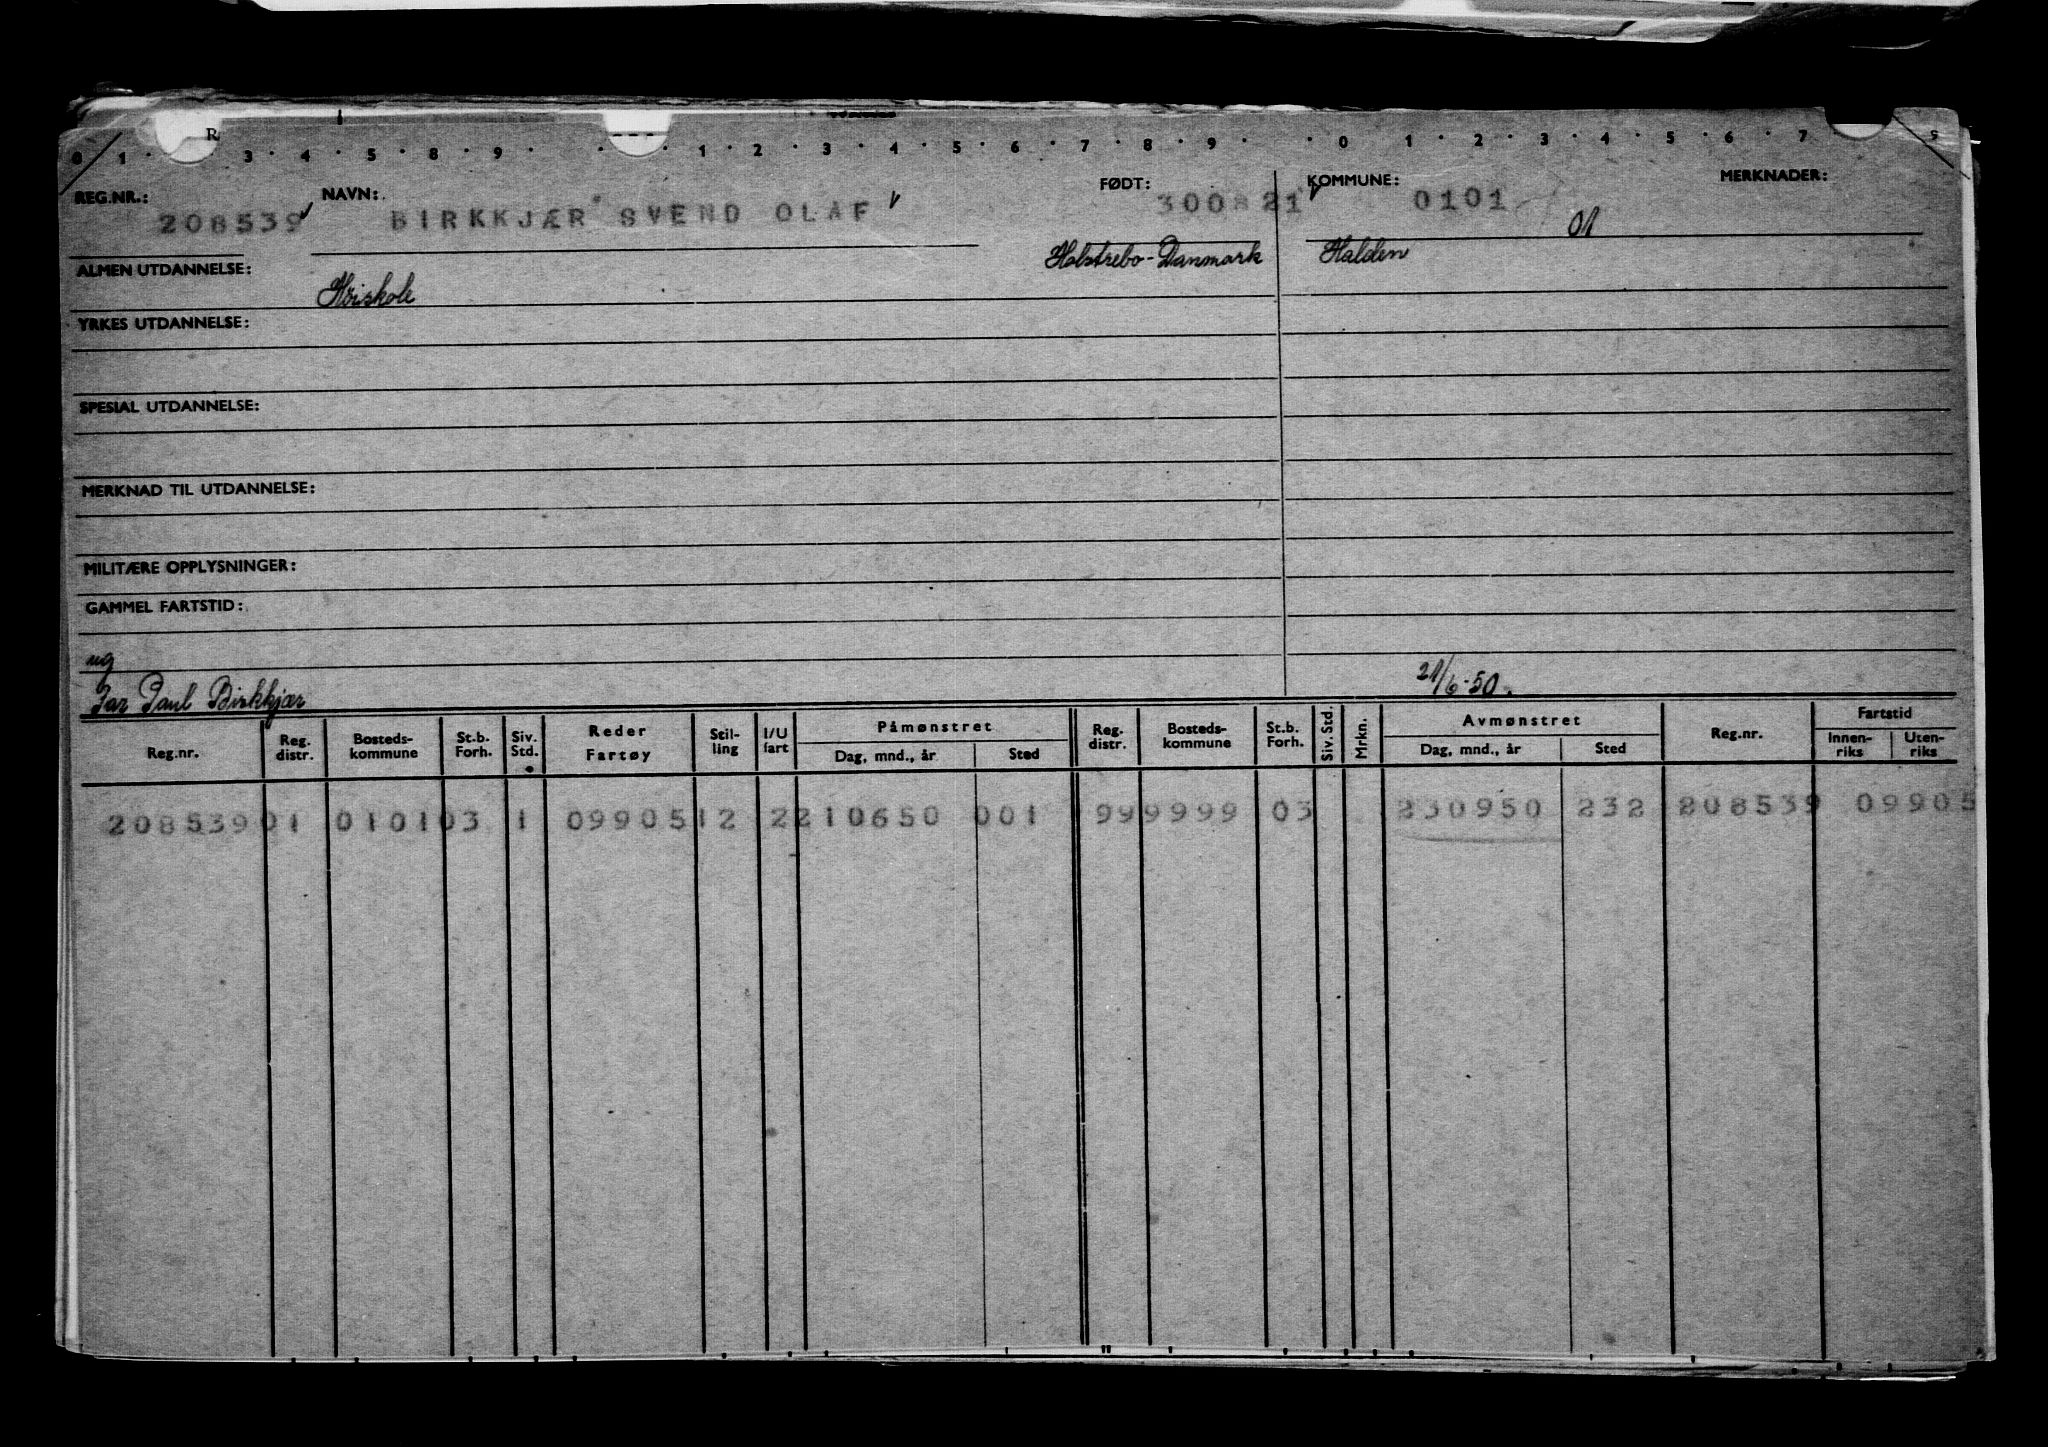 0 1 · R 3 · 4 · 5 · 8 · 9 · · · 1 · 2 · 3 · 4 · 5 · 6 · 7 · 8 · 9 · · 0 · 1 · 2 · 3 · 4 · 5 · 6 · 7 9
REG.NR.: NAVN: FØDT: KOMMUNE: MERKNADER:
208539 BIRKKJÆR SVEND OLAF 300821 0101 01
ALMEN UTDANNELSE: Holstrebo - Danmark Halden
Høiskole
YRKES UTDANNELSE:
SPESIAL UTDANNELSE:
MERKNAD TIL UTDANNELSE:
MILITÆRE OPPLYSNINGER:
GAMMEL FARTSTID:
ug
Far Paul Birkkjær 21/6-50.
Reg.nr. Reg. distr. Bosteds-kommune St.b. Forh. Siv. Std. Reder Fartøy Stil-ling I/U fart Påmønstret Dag, mnd., år Sted Reg. distr. Bosteds-kommune St.b. Forh. Siv. Std. Mrkn. Avmønstret Dag, mnd., år Sted Reg.nr. Fartstid Innen-riks Uten-riks
208539 01 0101 03 1 09905 12 2 210650 001 99 9999 03 230950 232 208539 09905